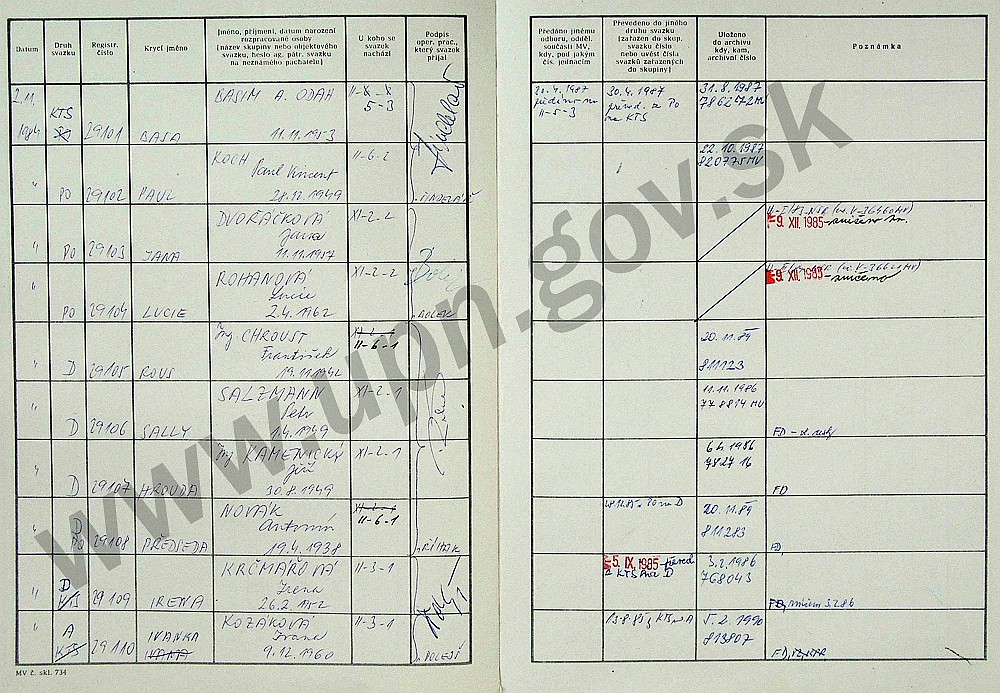 Datum
Druh
svazku
Registr.
číslo
Krycí jméno
Jméno, příjmení, datum narození
rozpracované osoby
(název skupiny nebo objektového
svazku, heslo ag. pátr. svazku
na neznámého pachatele)
U koho se
svazek
nachází
Podpis
oper. prac.,
který svazek
přijal
Předáno jinému
odboru, odděl.
součásti MV,
kdy, pod jakým
čís. jednacím
Převedeno do jiného
druhu svazku
(zařazen do skup.
svazku číslo
nebo uvést čísla
svazků zařazených
do skupiny)
Uloženo
do archivu
kdy, kam,
archivní číslo
Poznámka
2.11.
1984
KTS
29101
BASA
BASIM A. ODAH
11.11.1953
5-3
20.4.1987
II-5-3
30.4.1987
převd. z Po
na KTS
31.8.1987
786272MV
"
PO
29102
PAUL
KOCH
Paul Vincent
28.12.1949
II-6-2
22.10.1987
820775MV
"
PO
29103
JANA
DVOŘÁČKOVÁ
Jana
11.11.1957
XI-2-2
-9. XII. 1985
"
PO
29104
LUCIE
ROHANOVÁ
Lucie
2.4.1962
XI-2-2
DOLEK
-9. XII. 1985 - zničeno
"
D
29105
ROUS
Ing CHROUST
František
19.11.1942
XI-2-1
II-6-1
20.11.89
811123
"
D
29106
SALLY
SALZMANN
Petr
1.4.1949
XI-2-1
11.11.1986
778814 MV
FD -
"
D
29107
HROUDA
Ing KAMENICKÝ
Jiří
30.8.1949
XI-2-1
1986
782716
FD
"
D
PO
29108
PŘEDSEDA
NOVÁK
Antonín
19.4.1938
II-6-1
ŘÍHÁK
20.11.89
811283
FD
"
D
KTS
29109
IRENA
KRČMÁŘOVÁ
Irena
26.2.1952
II-3-1
-5. IX. 1985 převd
z KTS na D
3.2.1986
768043
FD, zničen 3.2.86
"
A
KTS
29110
IVANKA
IVANA
KOZÁKOVÁ
Ivana
9.12.1960
II-3-1
DOLEJŠ
13.8.85 z KTS na A
5.2.1990
813807
FD,
MV č. skl. 734
www.upn.gov.sk